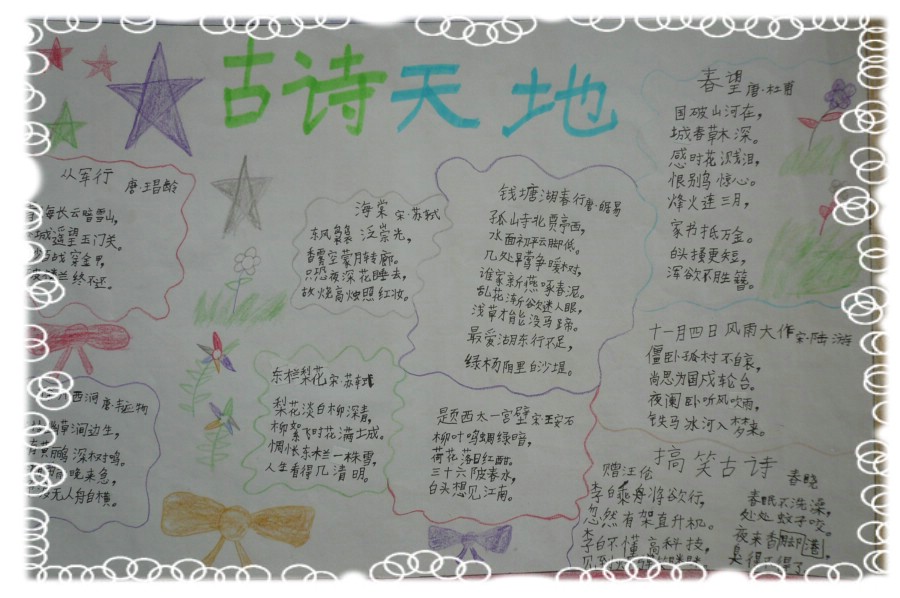 古诗天地
从军行 唐·王昌龄
海长云暗雪山,
城遥望玉门关。
战穿金甲,
兰终不还。
海棠 宋·苏轼
东风袅袅泛崇光,
香雾空蒙月转廊。
只恐夜深花睡去,
故烧高烛照红妆。
钱塘湖春行 唐·居易
孤山寺北贾亭西,
水面初平云脚低。
几处早莺争暖树,
谁家新燕啄春泥。
乱花渐欲迷人眼,
浅草才能没马蹄。
最爱湖东行不足,
绿杨阴里白沙堤。
春望 唐·杜甫
国破山河在,
城春草木深。
感时花溅泪,
恨别鸟惊心。
烽火连三月,
家书抵万金。
白头搔更短,
浑欲不胜簪。
十一月四日风雨大作 宋·陆游
僵卧孤村不自哀,
尚思为国戍轮台。
夜阑卧听风吹雨,
铁马冰河入梦来。
东栏梨花 宋·苏轼
梨花淡白柳深青,
柳絮飞时花满城。
惆怅东栏一株雪,
人生看得几清明。
西涧 唐·韦应物
草涧边生,
黄鹂深树鸣。
晚来急,
无人舟自横。
题西太一宫壁 宋·王安石
柳叶鸣蜩绿暗,
荷花落日红酣。
三十六陂春水,
白头想见江南。
搞笑古诗
赠汪伦
李白乘舟将欲行,
忽然有架直升机。
李白不懂高科技,
春晓
春眠不洗澡,
处处蚊子咬。
夜来香脚
臭得